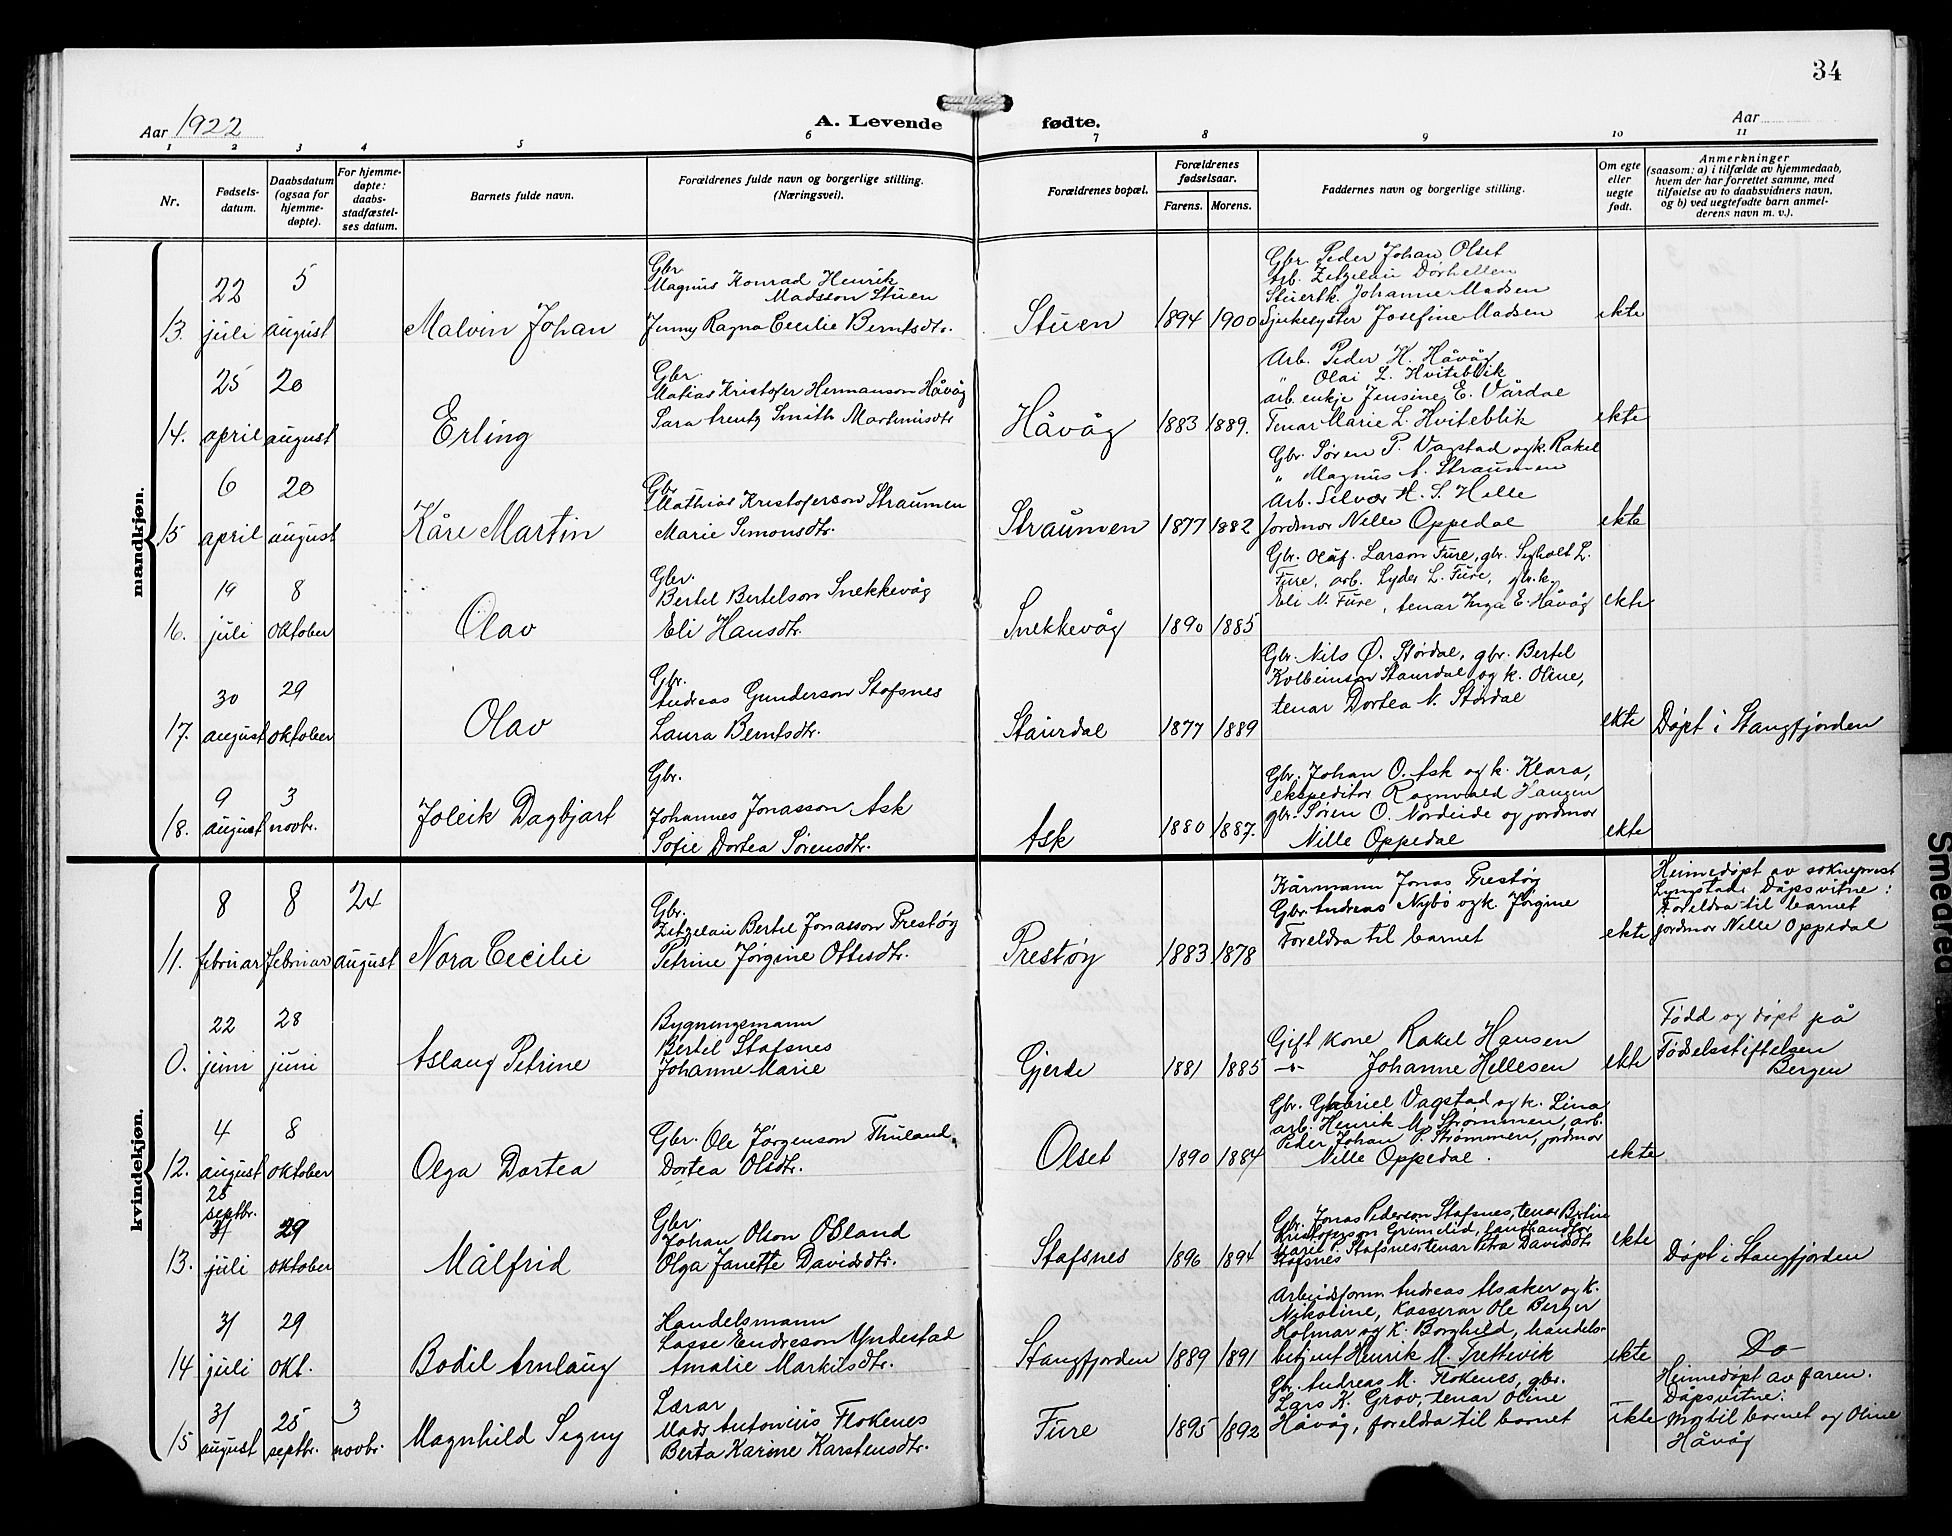 34
Aar 1922
A. Levende fødte.
Aar
1 2 3 4 5 6 7 8 9 10 11
Nr.
Fødsels-
datum.
Daabsdatum
(ogsaa for
hjemme-
døpte).
For hjemme-
døpte:
daabs-
stadfæstel-
ses datum.
Barnets fulde navn.
Forældrenes fulde navn og borgerlige stilling.
(Næringsvei).
Forældrenes bopæl.
Forældrenes
fødselsaar.
Farens. Morens.
Faddernes navn og borgerlige stilling.
Om egte
eller
uegte
født.
Anmerkninger
(saasom: a) i tilfælde av hjemmedaab,
hvem der har forrettet samme, med
tilføielse av to daabsvidners navn,
og b) ved uegtefødte barn anmel-
derens navn m. v.).
mandkjøn.
13.
22
juli
5
august
Malvin Johan
Gbr
Magnus Konrad Henrik
Madsson Stuen
Jenny Ragna Cecilie Berntsdtr.
Stuen
1894 1900
Gbr. Peder Johan Olset
Arb. Zetzelau Dørhellen
Stuertk. Johanne Madsen
Sjukesyster Josefine Madsen
ekte
14.
25
april
20
august
Erling
Gbr.
Matias Kristofer Hermanson Håvåg
Sara Arentz Smith Martinusdtr
Håvåg
1883 1889.
Arb. Peder H. Håvåg
" Olai L. Hviteblik
arb. enkje Jensine E. Vårdal
Tenar Marie L. Hviteblik
ekte
15
6
april
20
august
Kåre Martin
Gbr
Mathias Kristoferson Straumen
Marie Simonsdtr.
Straumen
1877 1882
Gbr. Søren P. Vagstad og k. Rakel
" Magnus A. Straumen
Arb. Silvær H. S. Hille
Jordmor Nille Oppedal
ekte
16.
19
juli
8
oktober
Olav
Gbr.
Bertel Bertelson Snekkevåg
Eli Hansdtr.
Snekkevåg
1890 1885
Gbr. Oluf Larson Fure, gbr. Sigholt L.
Fure, arb. Lyder L. Fure, gbr.k.
Eli N. Fure, tenar Inga E. Håvåg
ekte
17.
30
august
29
oktober
Olav
Gbr.
Andreas Gunderson Stafsnes
Laura Berntsdtr.
Staurdal
1877 1889
Gbr. Nils Ø. Stordal, gbr. Bertel
Kolbeinson Staurdal og k. Oline,
tenar Dortea N. Stordal
ekte
Døpt i Stangfjorden
18.
9
august
3
novbr.
Joleik Dagbjart
Gbr.
Johannes Jonasson Ask
Sofie Dortea Sørensdtr.
Ask
1880 1887.
Gbr. Johan O. Ask og k. Klara,
ekspeditor Ragnvald Haugen
gbr. Søren O. Nordeide og jordmor
Nille Oppedal
ekte
kvindekjøn.
11.
8
februar
8
februar
24
august
Nora Cecilie
Gbr.
Zetzelau Bertel Jonasson Prestøy
Petrine Jørgine Ottesdtr.
Prestøy
1883 1878
Kårmann Jonas Prestøy
Gbr Andreas Nybø og k. Jørgine
Foreldra til barnet
ekte
Heimedøpt av sokneprest
Lyngstad. Dåpsvitne:
Foreldra til barnet
jordmor Nille Oppedal
0.
22
juni
28
juni
Aslaug Petrine
Bygningsmann
Bertel Stafsnes
Johanne Marie
Gjerde
1881 1885
Gift kone Rakel Hansen
-"- Johanne Hellesen
ekte
Fødd og døpt på
Fødselsstiftelsen
Bergen
12.
4
august
8
oktober
Olga Dortea
Gbr. Ole Jørgenson Thuland
Dortea Olsdtr.
Olset
1890 1884
Gbr. Gabriel Vagstad og k. Lina
arb. Henrik M. Strømmen, arb.
Peder Johan P. Strømmen, jordmor
Nille Oppedal.
ekte
13.
25
septbr.
31
juli
29
oktober
Målfrid
Gbr.
Johan Olson Osland
Olga Janette Davidsdtr.
Stafsnes
1896 1894
Gbr. Jonas Pederson Stafsnes, tenar
Kristoferson Grimelid, landhandlar
Marie P. Stafsnes, tenar Petra Davidsdtr
Stafsnes
ekte
Døpt i Stangfjorden
14
31
juli
29
okt.
Bodil Arnlaug
Handelsmann
Lasse Endreson Yndestad
Amalie Markusdtr.
Stangfjorden
1889 1891
Arbeidsform. Andreas Alsaker og k.
Nikoline, Kasserar Ole Berger
Holmar og k. Borghild, handels-
betjent Henrik M. Trettevik
ekte
Do
15
31
august
25
septbr.
3
novbr.
Magnhild Signy
Lærar
Mads Antonius Flokenes
Berta Karine Karstensdtr.
Fure
1895 1892
Gbr. Andreas M. Flokenes, gbr.
Lars K. Grov, tenar Oline
Håvåg, foreldra til barnet
ekte
Heimedøpt av faren.
Dåpsvitne:
Mor til barnet og Oline
Håvåg
Smedred